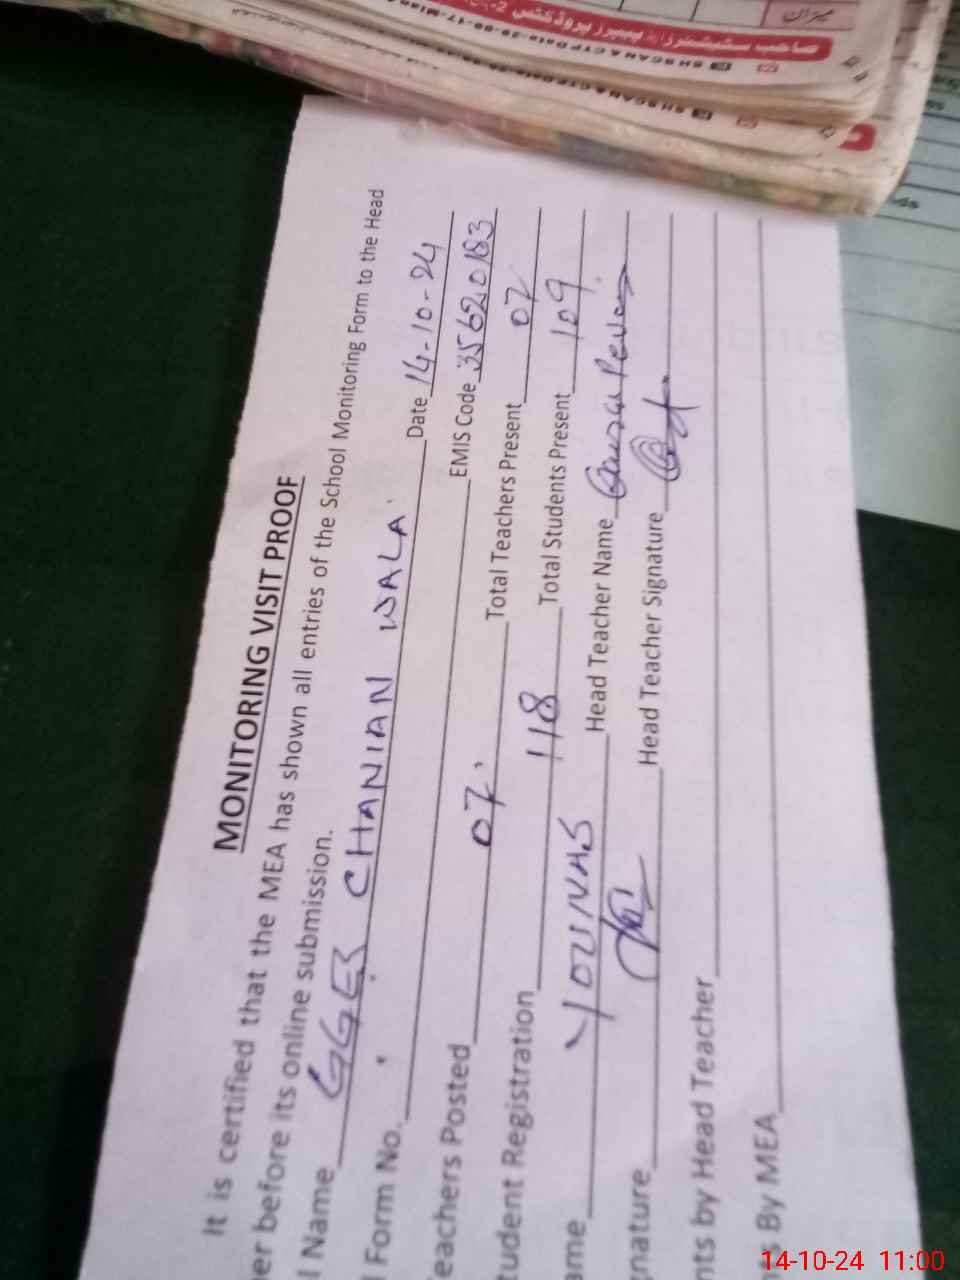 میزان
MONITORING VISIT PROOF
It is certified that the MEA has shown all entries of the School Monitoring Form to the Head
er before its online submission.
l Name GGES CHANIAN WALA Date 14-10-24
l Form No. EMIS Code 35620183
eachers Posted 07 Total Teachers Present 07
tudent Registration 118 Total Students Present 109
ame YOUNAS Head Teacher Name
gnature Head Teacher Signature
nts by Head Teacher
s By MEA
14-10-24 11:00